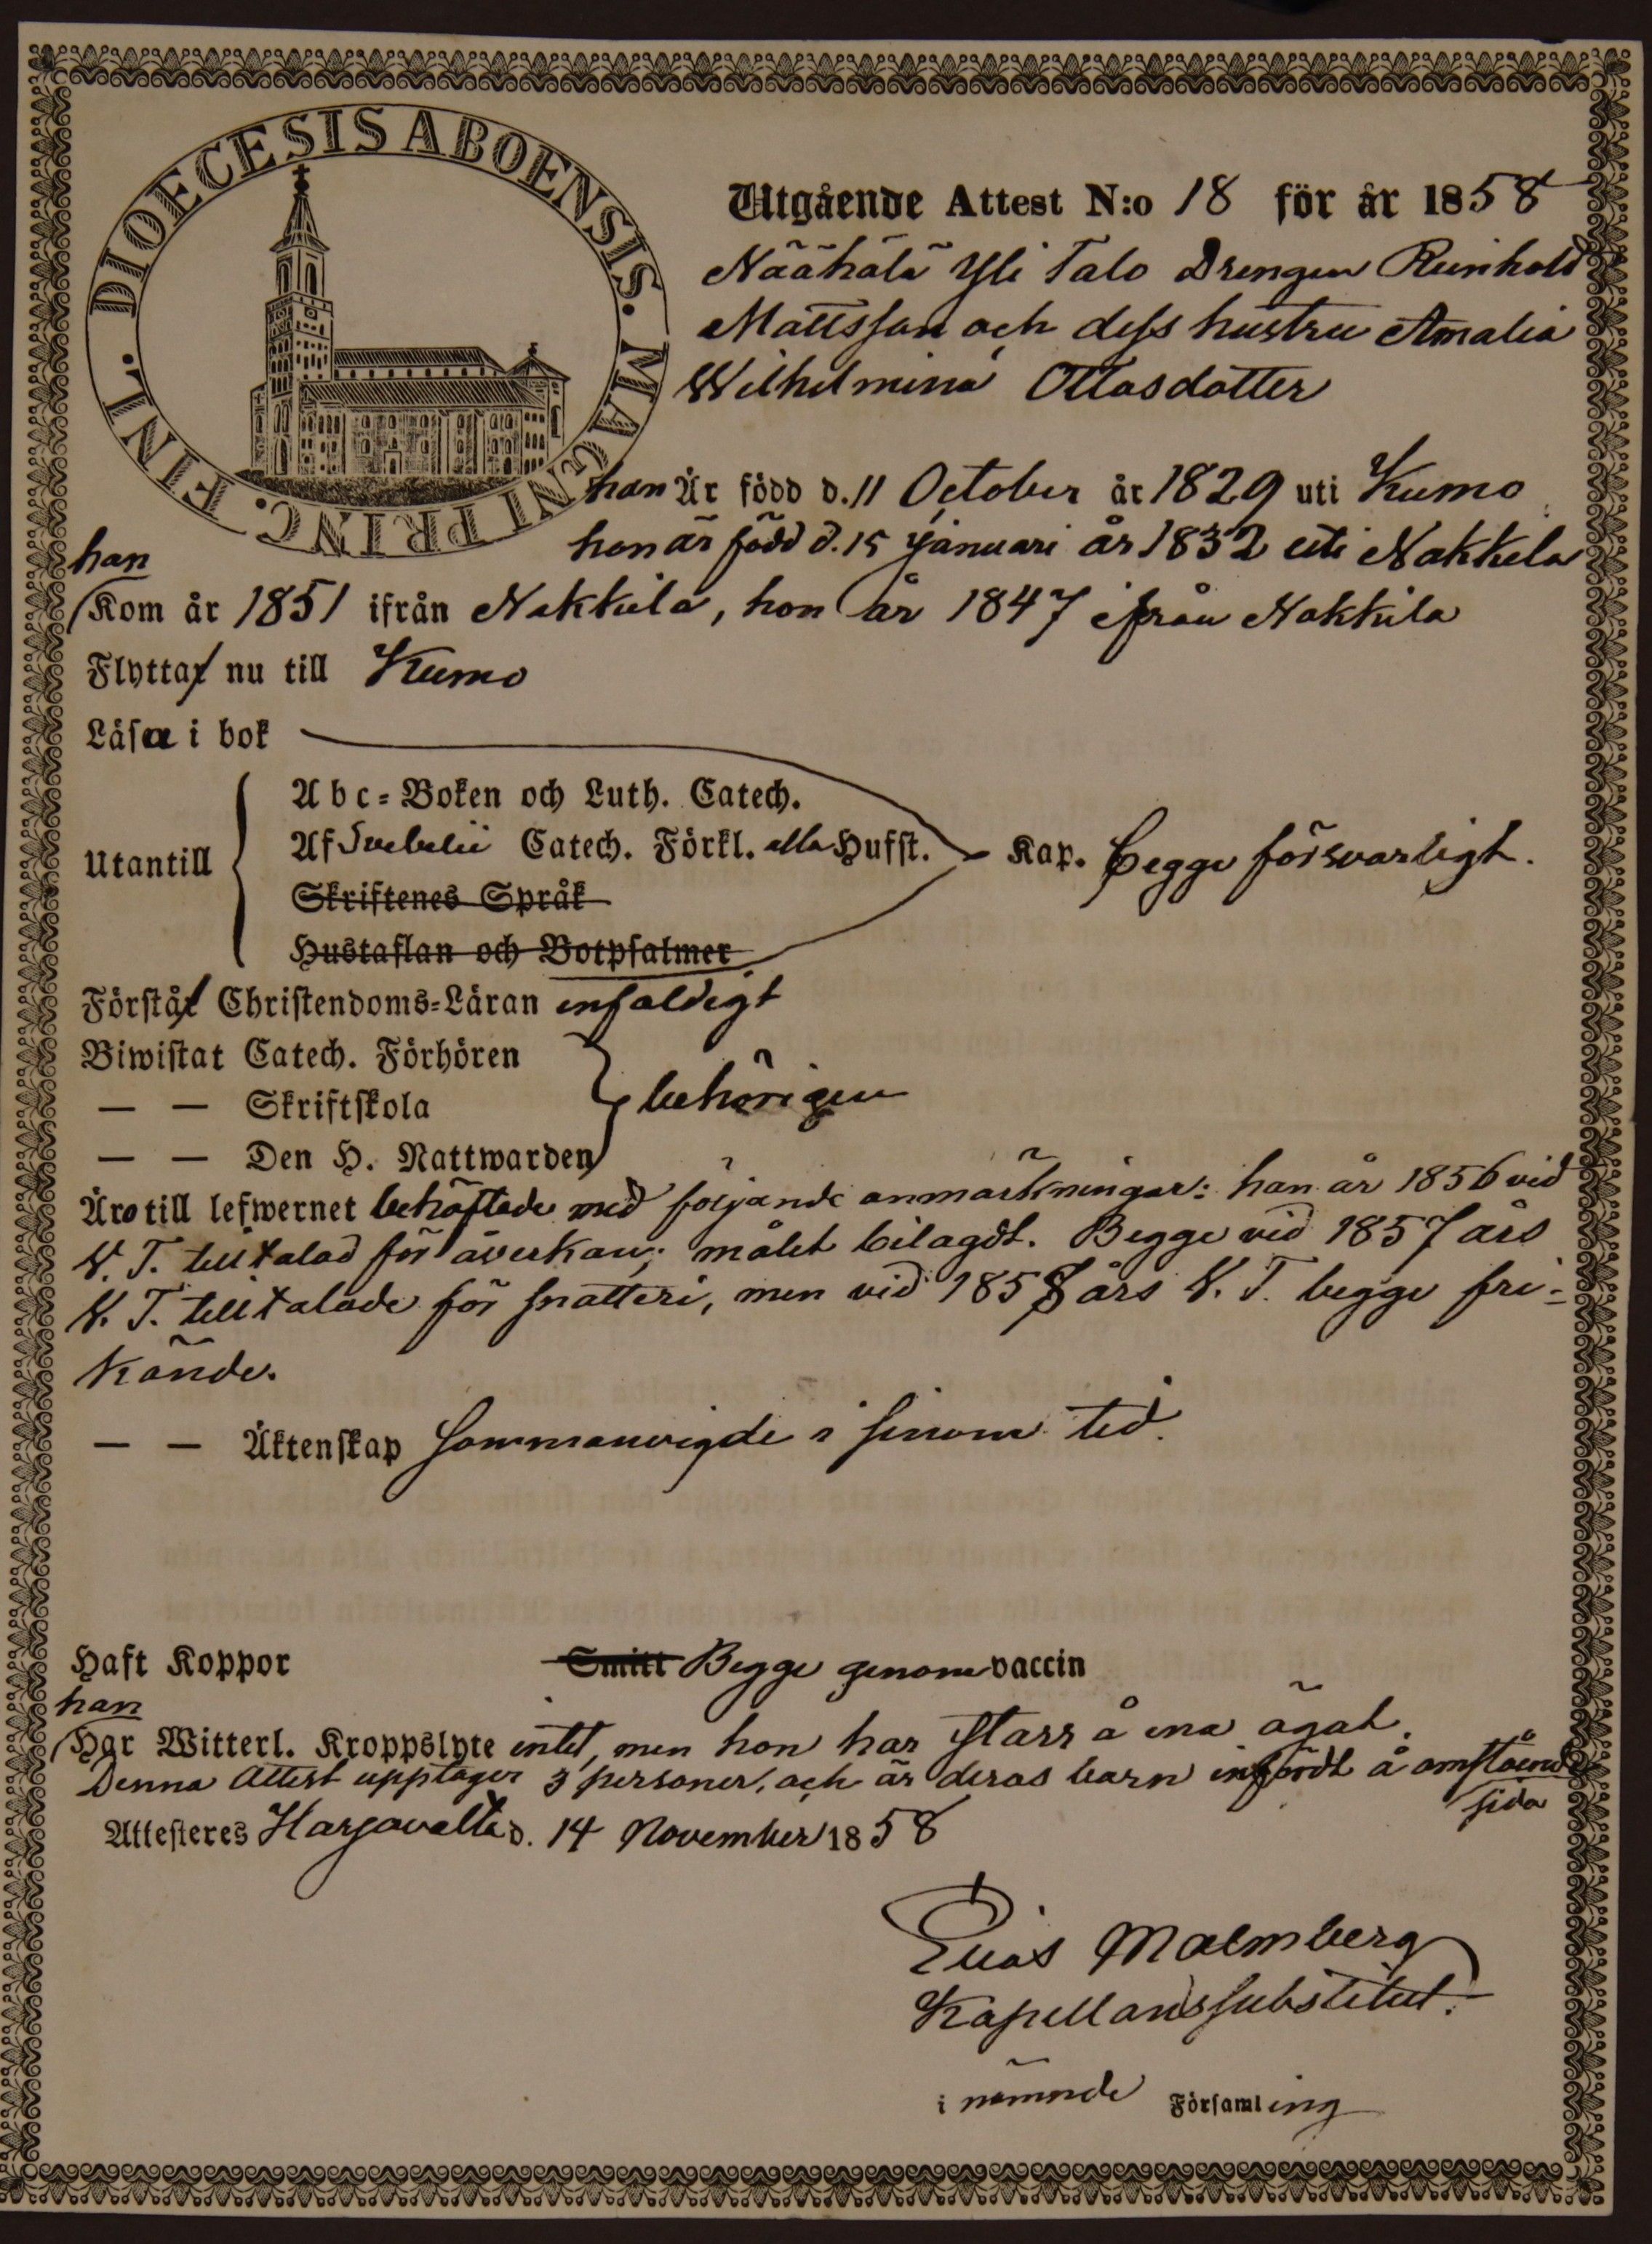 DIOECESIS ABOENSIS. MAGNI PRINC. FINL.
Utgående Attest N:o 18 för år 1858
Näähälä Yli Talo Drengen Reinhold
Mattsson och dess hustru Amalia
Wilhelmina Ottosdotter
han Är född d. 11 October år 1829 uti Kumo
hon är född d. 15 Januari år 1832 uti Nakkila
han
Kom år 1851 ifrån Nakkila, hon år 1847 ifrån Nakkila
Flytta nu till Kumo
Läsa i bok
Utantill
Abc-Boken och Luth. Catech.
Af Svebelii Catech. Förkl. alla Hufst. Kap. begge försvarligt.
Skriftenes Språk
Hustaflan och Botpsalmer
Förstå Christendoms-Läran enfaldigt
Biwistat Catech. Förhören
— — Skriftskola behörigen
— — Den H. Nattwarden
Äro till lefwernet behäftade med följande anmärkningar: han år 1856 vid
V. T. tilltalad för åverkan; målet bilagdt. Begge vid 1857 års
V. T. tilltalade för snatteri, men vid 1858 års V. T. begge fri-
kände.
— — Äktenskap sammanvigde i sinom tid.
Haft Koppor Smitt Begge genom vaccin
han
Har Witterl. Kroppslyte intet, men hon har starr å ena ögat.
Denna Attest upptager 3 personer, och är deras barn infördt å omstående
sida
Attesteres Harjavalta d. 14 November 1858
Elias Malmberg
Kapellanssubstitut.
i nämnde Församling